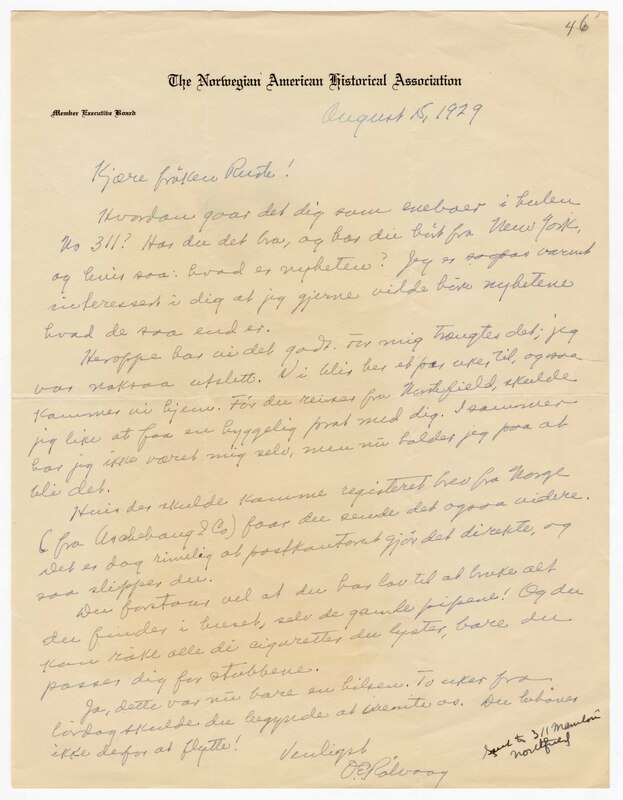 46
The Norwegian American Historical Association
Member Executive Board
August 15, 1929
Kjære fröken Rude!
Hvordan gaar det dig som eneboer i hulen
No 311? Har du det bra, og har du hört fra New York,
og hvis saa: hvad er nyheten? Jeg er saapas varmt
interessert i dig at jeg gjerne vilde höre nyhetene
hvad de saa end er.
Heroppe har vi det godt. For mig trængtes det; jeg
var noksaa utslett. Vi blir her et par uker til, og saa
kommer vi hjem. Før du reiser fra Northfield, skulde
jeg like at faa en hyggelig prat med dig. I sommer
har jeg ikke været mig selv, men nu holder jeg paa at
bli det.
Hvis der skulde komme registeret brev fra Norge
(fra Aschehoug & Co) faar du sende det ogsaa videre.
Det er dog rimelig at postkontoret gjör det direkte, og
saa slipper du.
Du forstaar vel at du har lov til at bruke alt
du finder i huset, selv de gamle piperne! Og du
kan röke alle de cigaretter du lyster, bare du
passer dig for stubbene.
Ja, dette var nu bare en hilsen. To uker fra
lördag skulde du begynde at vente os. Du behöver
ikke derfor at flytte!
Venligst
O. E. Rölvaag
Sent to 311 Manitou
Northfield